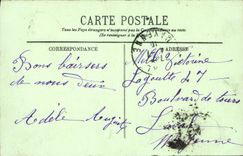 CARTE POSTALE
Tous les Pays étrangers n'acceptent pas la Correspondance au recto
(Se renseigner à la Poste)
CORRESPONDANCE
ADRESSE
Bons baisers
de nous deux
Adèle
Boulevard de tours
Laval
Mayenne